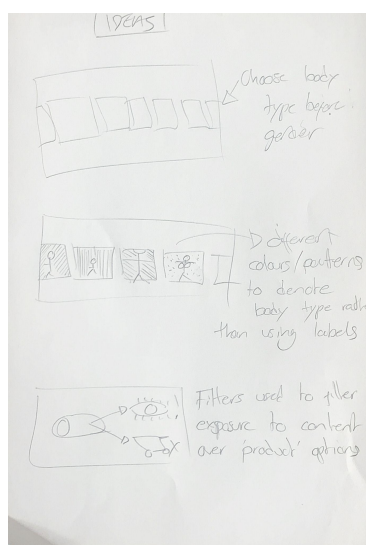 IDEAS
Choose body
type before
gender
Different
colours/patterns
to denote
body type rath
than using labels
Filters used to filter
exposure to content
over 'product' options